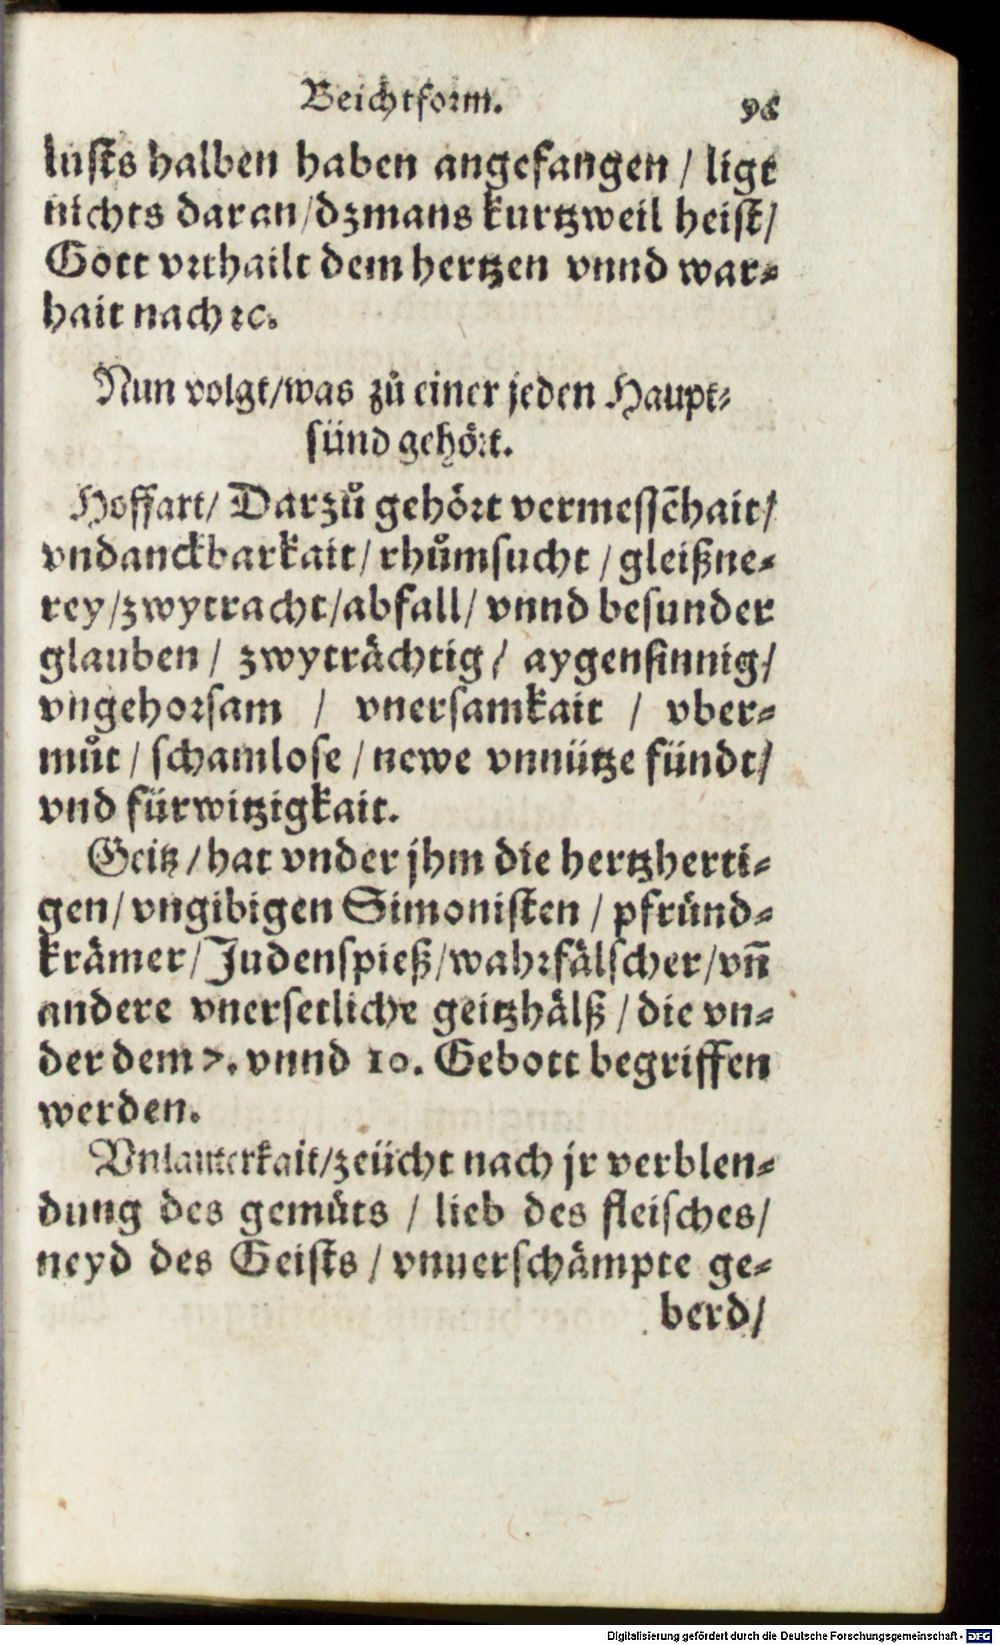 Beichtform. 98
lusts halben haben angefangen / ligt
nichts daran/dz mans kurtzweil heist/
Gott vrthailt dem hertzen vnnd war-
hait nach ꝛc.
Nun volgt/was zů einer jeden Haupt-
sünd gehört.
Hoffart/ Darzů gehört vermessẽhait/
vndanckbarkait/rhůmsucht / gleißne-
rey/zwytracht/abfall/ vnnd besunder
glauben / zwyträchtig/ aygensinnig/
vngehorsam / vnersamkait / vber-
můt / schamlose / newe vnnütze fündt/
vnd fürwitzigkait.
Geitz / hat vnder jhm die hertzherti-
gen/ vngibigen Simonisten / pfründ-
krämer/ Judenspieß/wahrfälscher/vñ
andere vnersetliche geitzhälß / die vn-
der dem 7. vnnd 10. Gebott begriffen
werden.
Vnlauterkait/zeücht nach jr verblen-
dung des gemüts / lieb des fleisches/
neyd des Geists / vnuerschämpte ge-
berd/
Digitalisierung gefördert durch die Deutsche Forschungsgemeinschaft - DFG